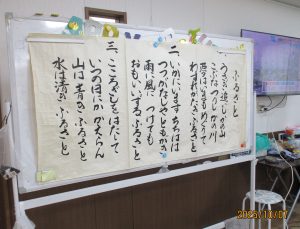 ふるさと
一、うさぎ追いし かの山
こぶなつりし かの川
夢はいまも めぐりて
わすれがたき ふるさと
二、いかにいます ちちはは
つつがなしや ともがき
雨に風に つけても
おもいいずる ふるさと
三、こころざしを はたして
いつの日にか かえらん
山は青き ふるさと
水は清き ふるさと